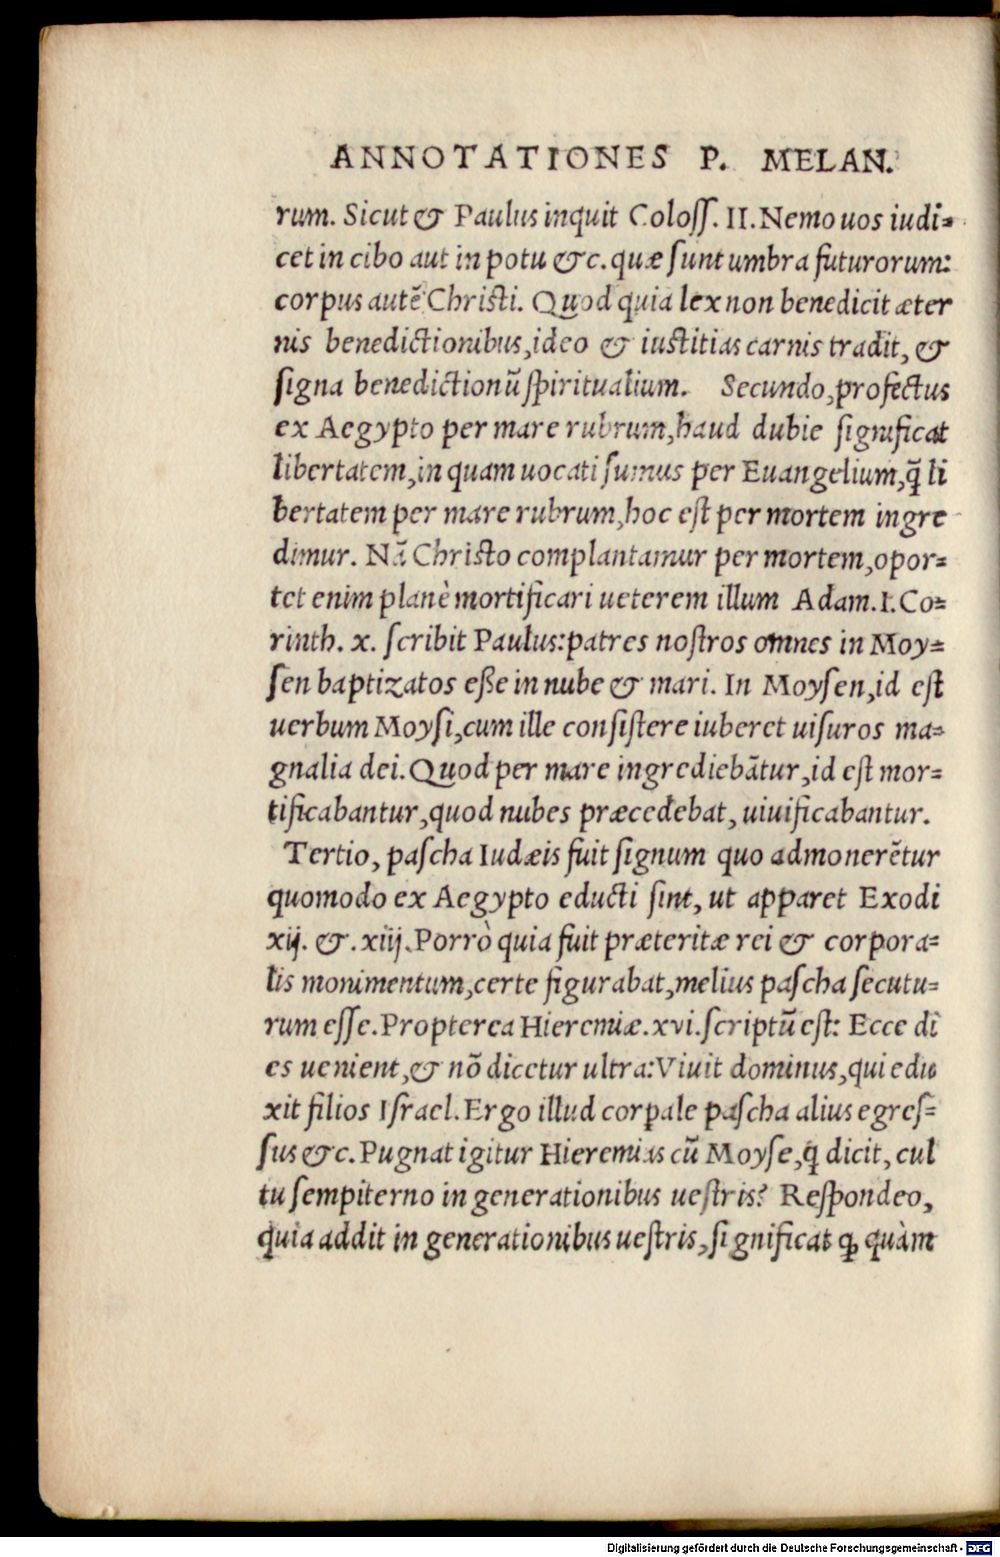 ANNOTATIONES P. MELAN.
rum. Sicut & Paulus inquit Coloſſ. II. Nemo uos iudi=
cet in cibo aut in potu &c. quæ ſunt umbra futurorum:
corpus autẽ Chriſti. Quod quia lex non benedicit æter
nis benedictionibus, ideo & iuſtitias carnis tradit, &
ſigna benedictionũ ſpiritualium. Secundo, profectus
ex Aegypto per mare rubrum, haud dubie ſignificat
libertatem, in quam uocati ſumus per Euangelium, q̃ li
bertatem per mare rubrum, hoc eſt per mortem ingre
dimur. Nã Chriſto complantamur per mortem, opor=
tet enim planè mortificari ueterem illum Adam. I. Co=
rinth. x. ſcribit Paulus: patres noſtros omnes in Moy=
ſen baptizatos eſſe in nube & mari. In Moyſen, id eſt
uerbum Moyſi, cum ille conſiſtere iuberet uiſuros ma=
gnalia dei. Quod per mare ingrediebãtur, id eſt mor=
tificabantur, quod nubes præcedebat, uiuificabantur.
Tertio, paſcha Iudæis fuit ſignum quo admonerẽtur
quomodo ex Aegypto educti ſint, ut apparet Exodi
xij. &. xiij. Porrò quia fuit præteritæ rei & corpora=
lis monimentum, certe figurabat, melius paſcha ſecutu=
rum eſſe. Propterea Hieremiæ. xvi. ſcriptũ eſt: Ecce di
es uenient, & nõ dicetur ultra: Viuit dominus, qui edu
xit filios Iſrael. Ergo illud corpale paſcha alius egreſ=
ſus &c. Pugnat igitur Hieremias cũ Moyſe, q̃ dicit, cul
tu ſempiterno in generationibus ueſtris? Reſpondeo,
quia addit in generationibus ueſtris, ſignificat ꝙ quàm
Digitalisierung gefördert durch die Deutsche Forschungsgemeinschaft - DFG